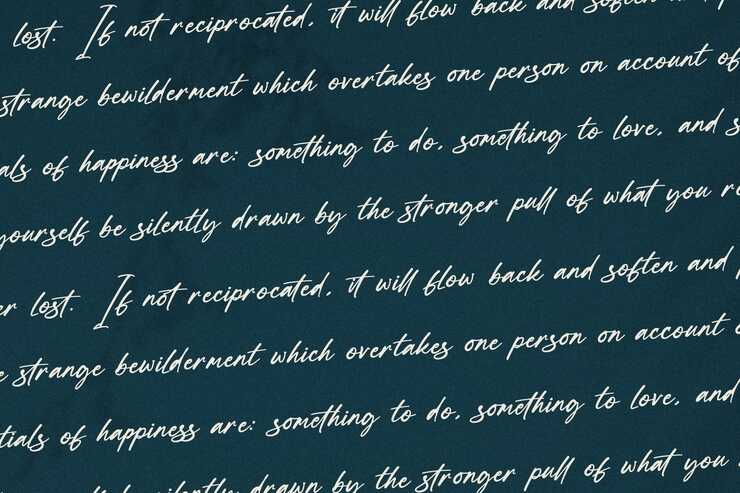 lost. If not reciprocated, it will flow back and soften
strange bewilderment which overtakes one person on account of
als of happiness are: something to do, something to love, and s
yourself be silently drawn by the stronger pull of what you re
er lost. If not reciprocated, it will flow back and soften and
e strange bewilderment which overtakes one person on account
tials of happiness are: something to do, something to love, and
silently drawn by the stronger pull of what you